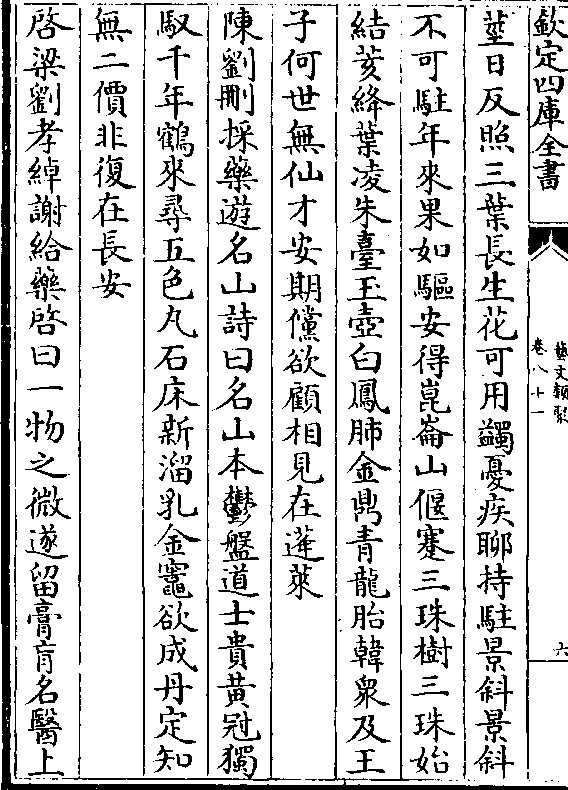 欽定四庫全書
藝文類聚
卷八十一
六
莖日反照三葉長生花可用蠲憂疾聊持駐景斜景斜
不可駐年來果如驅安得崑崙山偃蹇三珠樹三珠始
結荄絳葉凌朱臺玉壺白鳳肺金鼎青龍胎韓衆及王
子何世無仙才安期儻欲顧相見在蓬萊
陳劉刪採藥遊名山詩曰名山本鬱盤道士貴黃冠獨
馭千年鶴來尋五色丸石床新溜乳金竈欲成丹定知
無二價非復在長安
啓梁劉孝綽謝給藥啓曰一物之微遂留膏肓名醫上